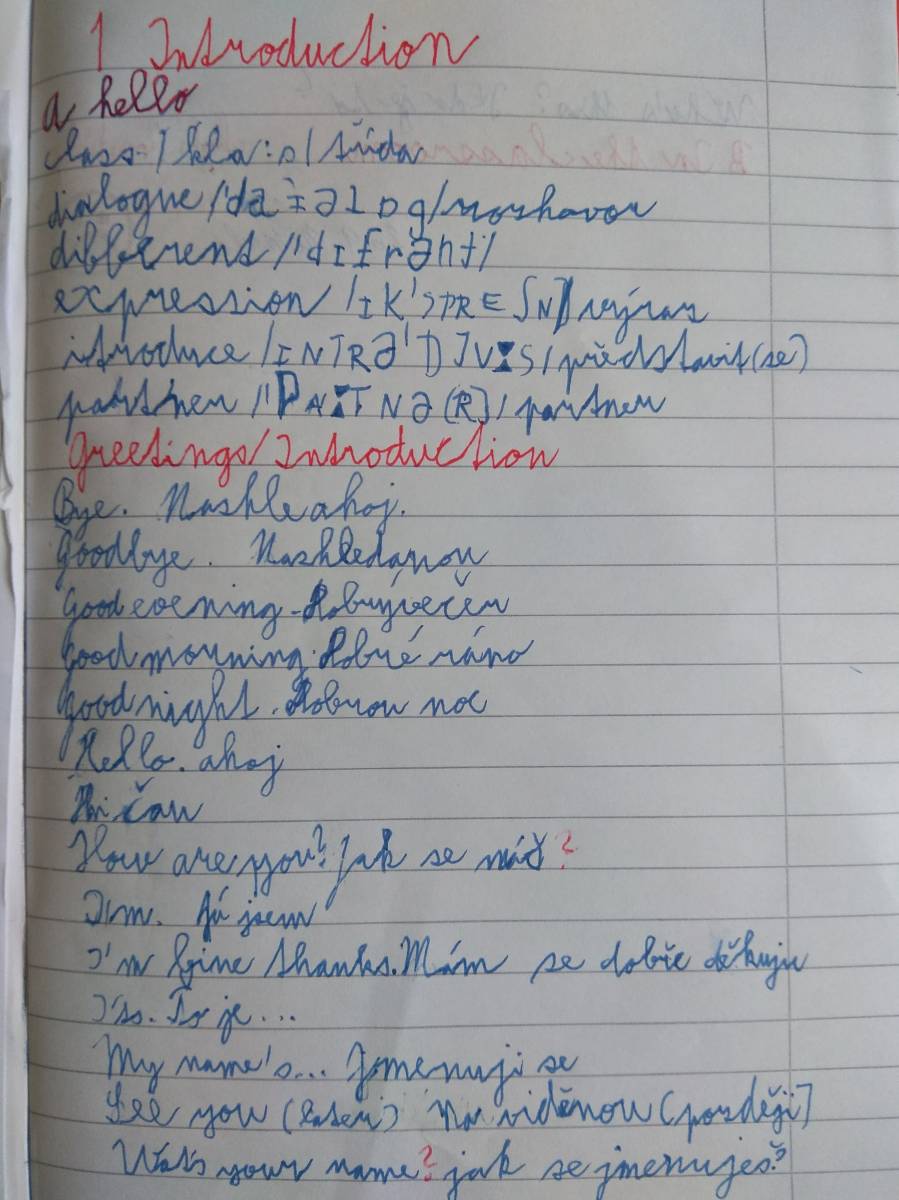 1 Introduction
a hello
class /kla:s/ třída
dialogue /'daɪəlɒg/ rozhovor
different /'dɪfrənt/
expression /ɪK'SPREʃN/ výraz
itroduce /INTRə'DJU:S/ představit (se)
partner /'PA:TNə(R)/ partner
Greetings/Introduction
Bye. Nashle ahoj.
Goodbye. Nashledanou
Good evening - Dobrý večer
Good morning. Dobré ráno
good night. Dobrou noc
Hello. ahoj
Hi čau
How are you? Jak se máš?
I'm. Já jsem
I'm fine thanks. Mám se dobře děkuju
To je...
My name's... Jmenuji se
See you (later) Na viděnou (pozděgi)
Wat's your name? jak se jmenuješ?